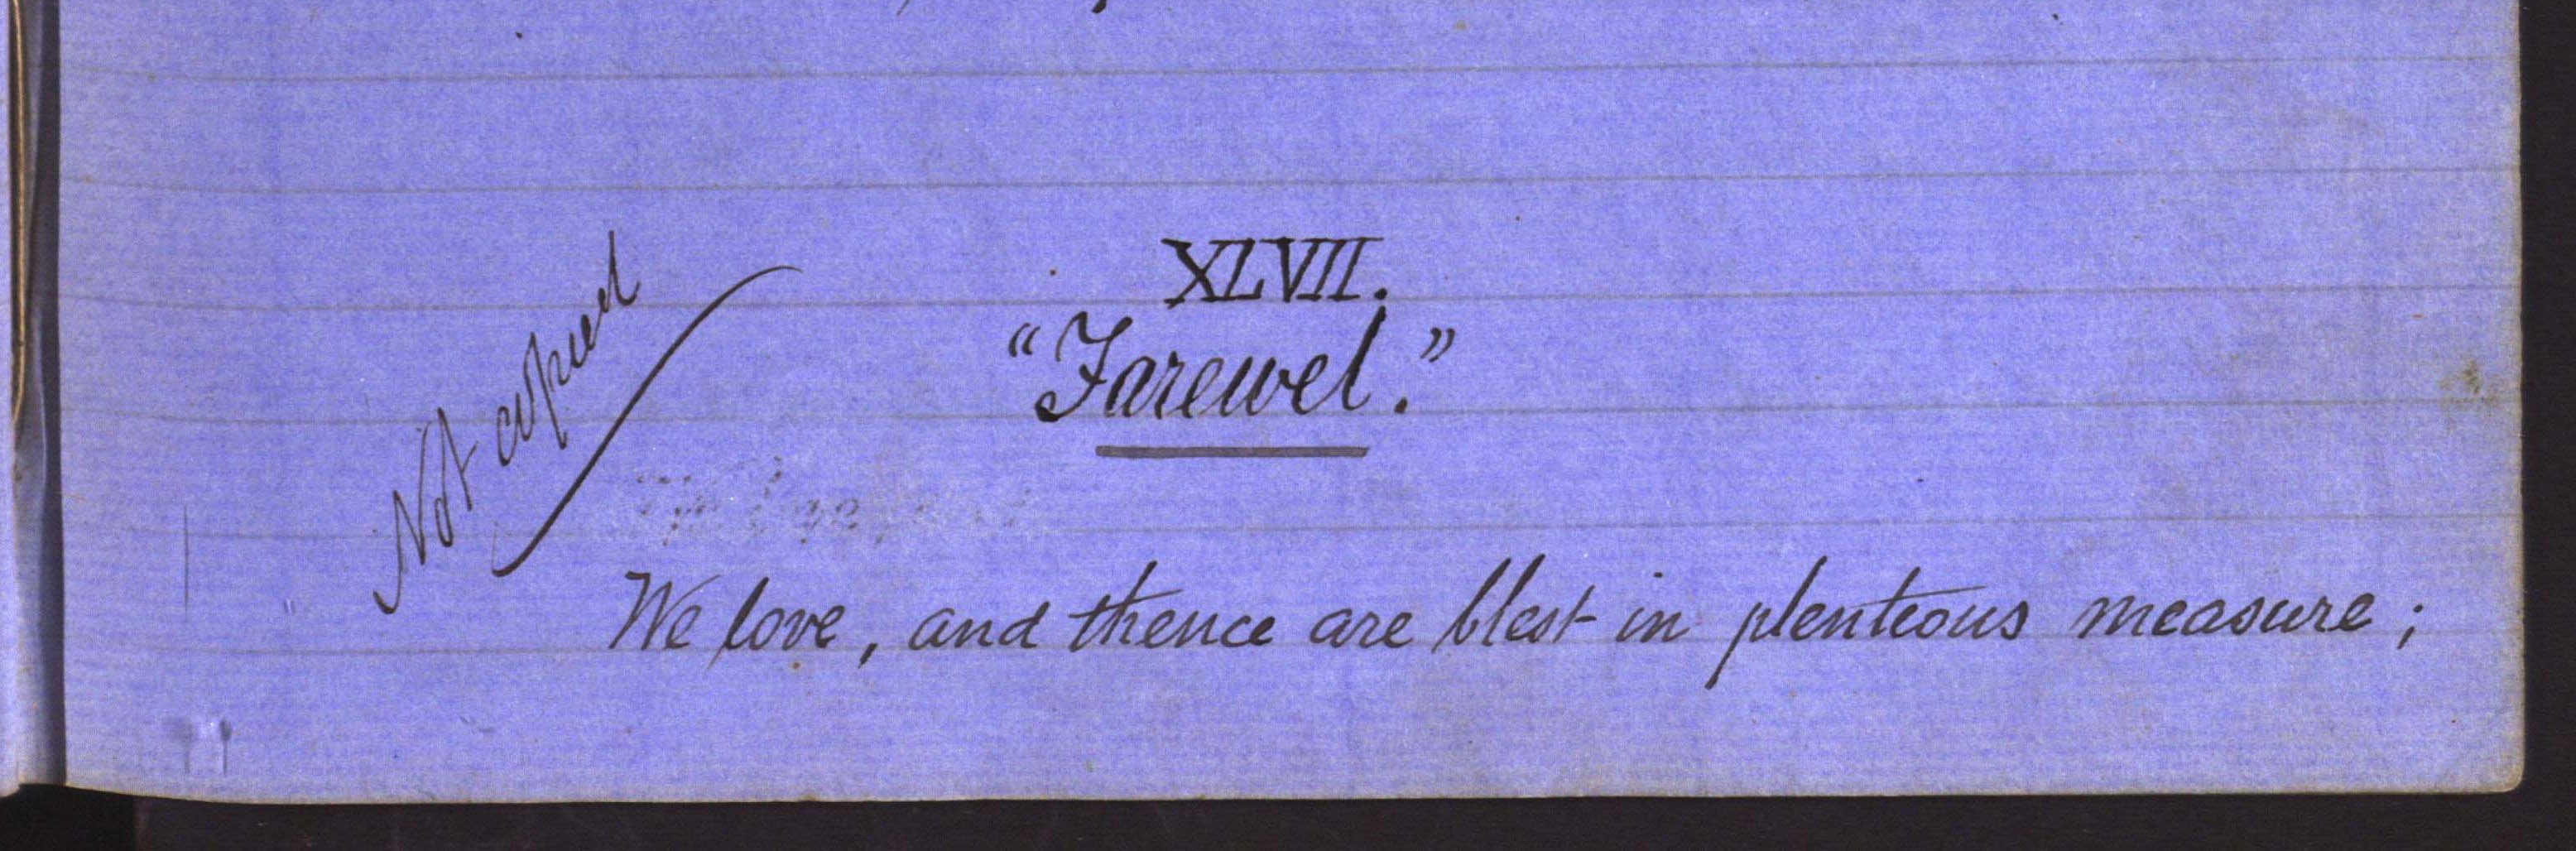 XLVII.
"Farewel."
Not copied
We love, and thence are blest in plenteous measure;